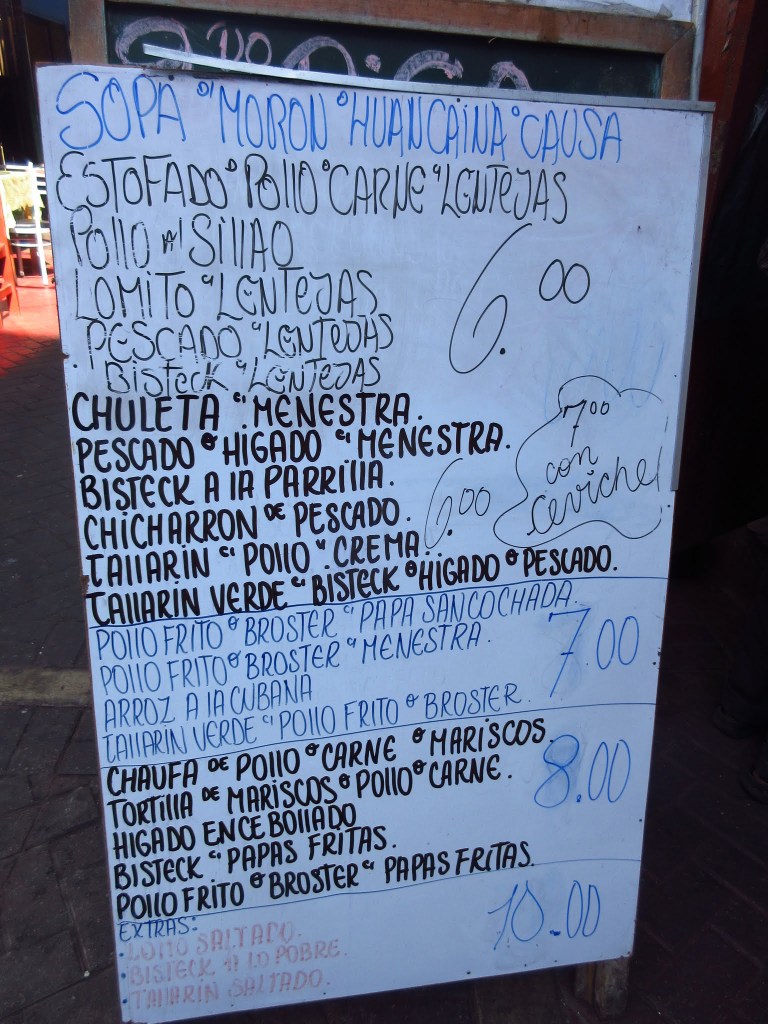 SOPA O MORON O HUANCAINA O CAUSA
ESTOFADO O POLLO O CARNE C/ LENTEJAS
POLLO AL SILLAO
LOMITO C/ LENTEJAS
PESCADO C/ LENTEJAS
BISTECK C/ LENTEJAS
6.00
CHULETA C/ MENESTRA.
PESCADO O HIGADO C/ MENESTRA.
BISTECK A LA PARRILLA.
CHICHARRON DE PESCADO.
TALLARIN C/ POLLO C/ CREMA.
TALLARIN VERDE C/ BISTECK O HIGADO O PESCADO.
6.00
7.00
con
ceviche
POLLO FRITO O BROSTER C/ PAPA SANCOCHADA.
POLLO FRITO O BROSTER C/ MENESTRA.
ARROZ A LA CUBANA
TALLARIN VERDE C/ POLLO FRITO O BROSTER.
7.00
CHAUFA DE POLLO O CARNE O MARISCOS.
TORTILLA DE MARISCOS O POLLO O CARNE.
HIGADO ENCEBOLLADO
BISTECK C/ PAPAS FRITAS.
POLLO FRITO O BROSTER C/ PAPAS FRITAS.
8.00
EXTRAS:
LOMO SALTADO.
BISTECK A LO POBRE.
TALLARIN SALTADO.
10.00